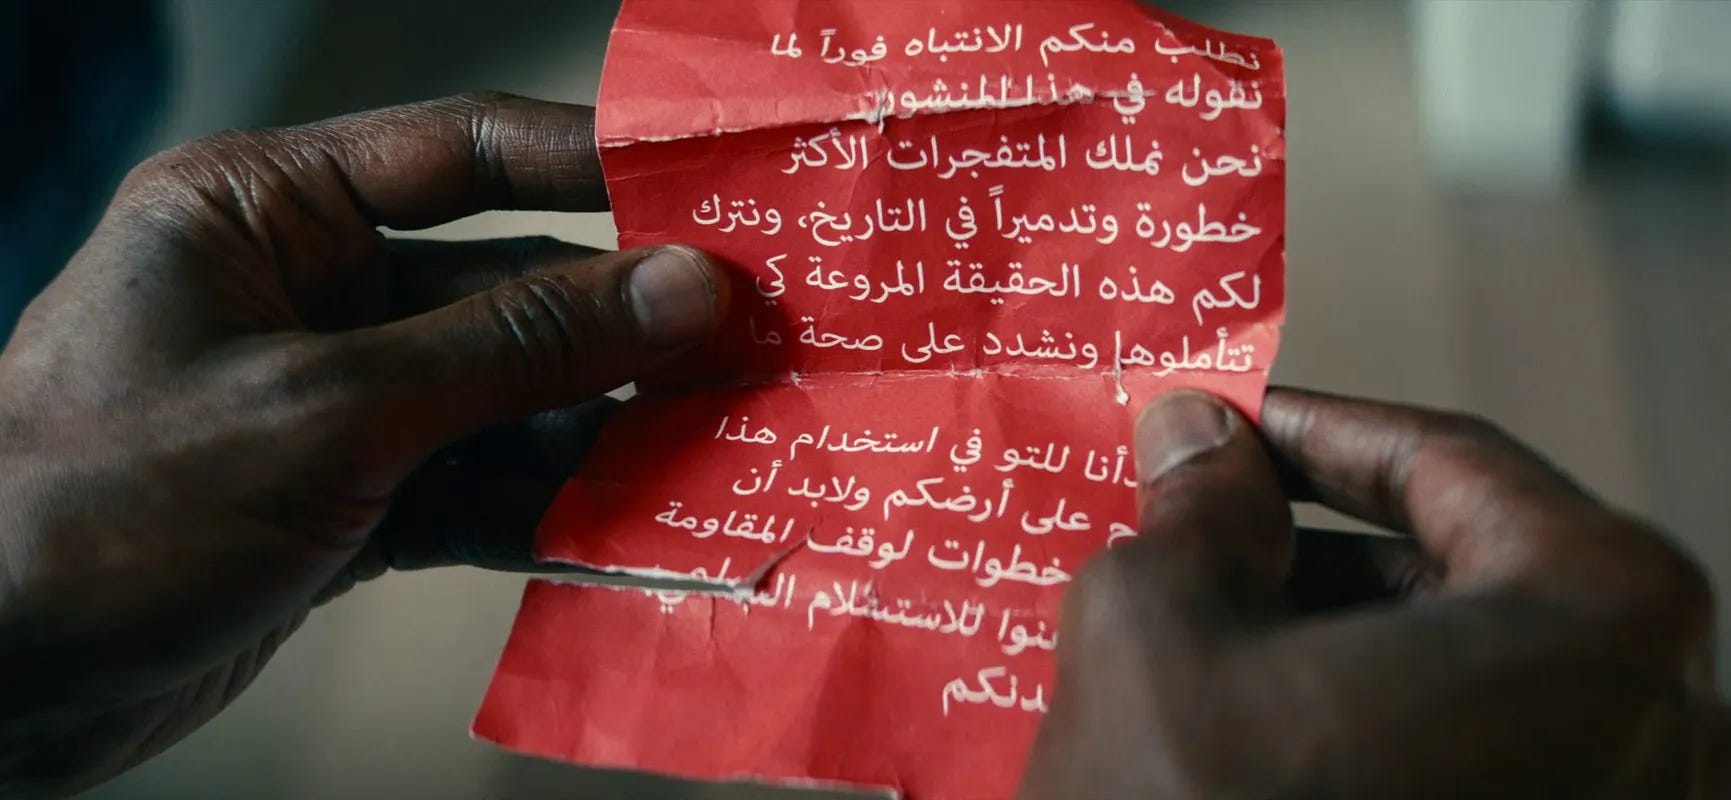 نطلب منكم الانتباه فوراً لما
نقوله في هذا المنشور
نحن نملك المتفجرات الأكثر
خطورة وتدميراً في التاريخ، ونترك
لكم هذه الحقيقة المروعة كي
تتأملوها ونشدد على صحة ما
للتو في استخدام هذا
على أرضكم ولابد أن
خطوات لوقف المقاومة
للاستسلام السلمي.